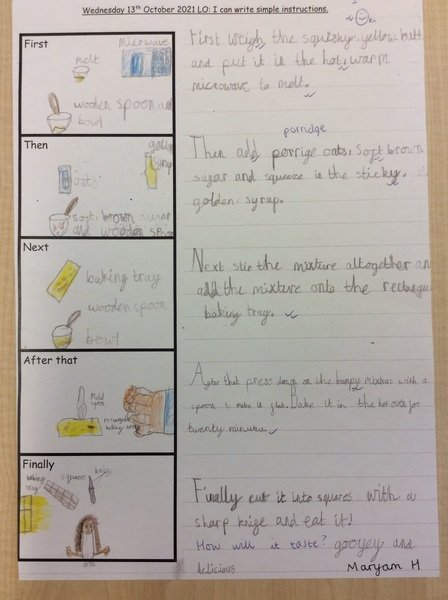 Wednesday 13th October 2021 LO: I can write simple instructions.
First
melt
Microwave
wooden spoon and
bowl
First weigh the squishy, yellow butt
and put it in the hot, warm
microwave to melt.
Then
oats
golden
syrup
soft brown sugar
and wooden spoon
porridge
Then add porrige oats, soft brown
sugar and squeeze in the sticky,
golden syrup.
Next
baking tray
wooden spoon
bowl
Next stir the mixture altogether an
add the mixture onto the rectangu
baking tray.
After that
spoon
rectangular
baking tray
After that press down on the bumpy mixture with a
spoon to make it flat. Bake it in the hot oven for
twenty minutes.
Finally
baking
tray
squares
knife
Finally cut it into squares with a
sharp knige and eat it!
How will it taste? gooyey and
delicious
Maryam H